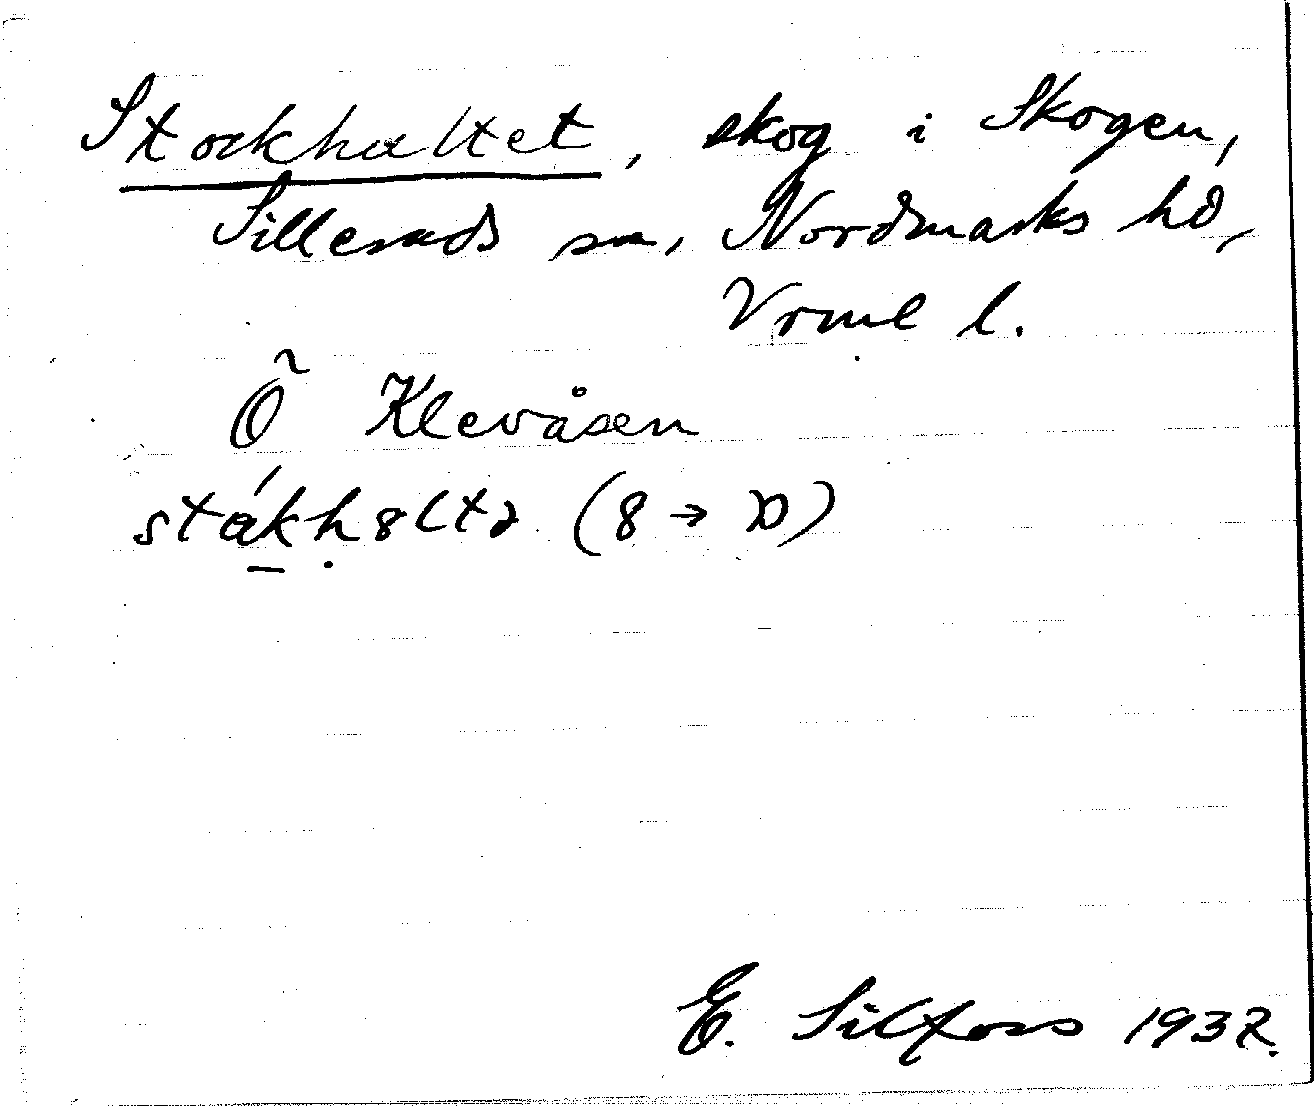 Stockhultet, skog i Skogen,
Silleruds sn, Nordmarks hd,
Vrml l.
Õ Klevåsen
sták̠ḥ8ltə (8 → ɷ)
E. Silfors 1937.